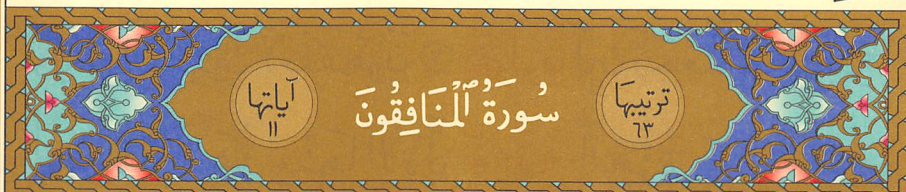 ترتيبها
٦٣
سُورَةُ ٱلْمُنَافِقُونَ
آياتها
١١